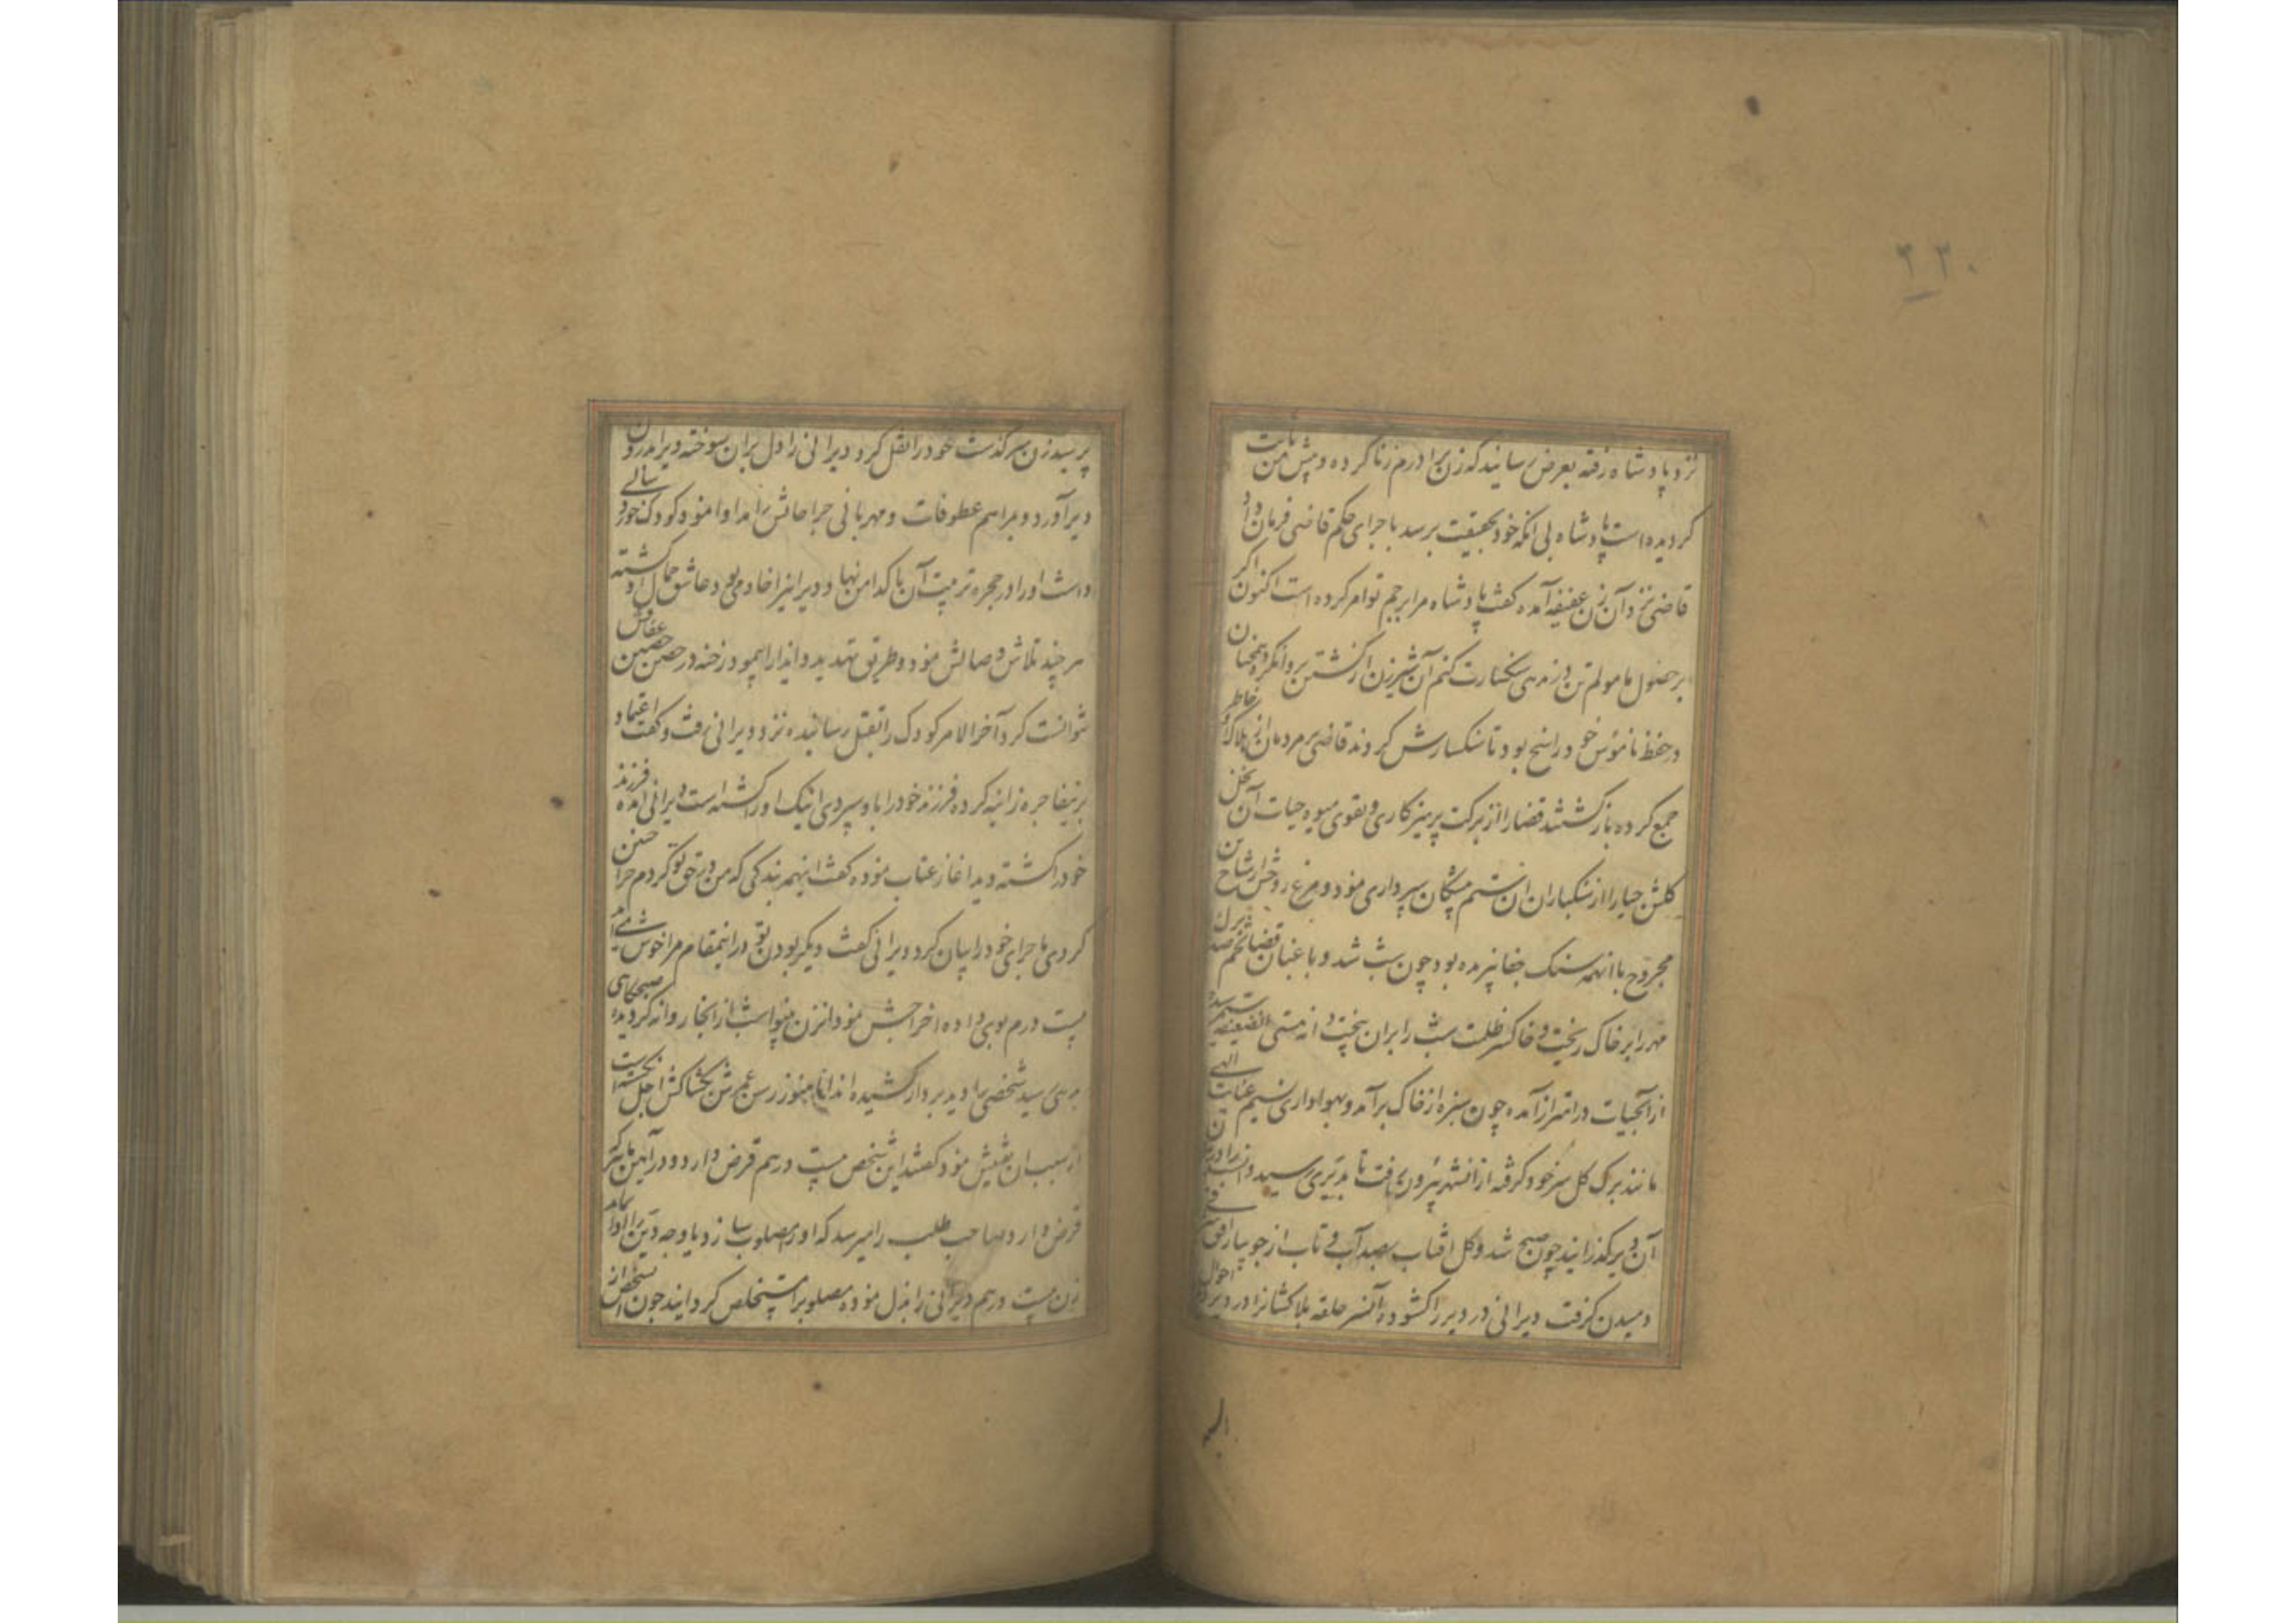 ۲۳۰
نزد پادشاه رفته بعرض رسانید که زن برادرم زنا کرده و پیش من ثابت
کردیده است پادشاه بی انکه خود بحقیقت برسد باجرای حکم قاضی فرمان داد
قاضی نزد آن زن عفیفه آمده کفت پادشاه مرا برجم تو امر کرده است اکنون اکر
بر حصول مامولم تن در ندهی سنکسارت کنم آن شیرزن از کشتن پروا نکرد همچنان
در حفظ ناموس خود راسخ بود تا سنکسارش کردند قاضی و مردمان از هلاک او خاطر
جمع کرده باز کشتند قضا را از برکت پرهیزکاری و تقوی میوه حیات آن نخل
کلشن حیا را از سنکباران ان ستم پیشکان سپرداری نمود و مرغ روحش از شاخ تن
مجروح با انهمه سنک جفا نپریده بود چون شب شد و باغبان قضا تخم
مهر را بر خاک ریخت و خاکستر ظلمت شب را بران بیخت
از آبحیات در اهتزاز آمده چون سبزه از خاک برآمد و بهواداری نسیم عنایت الهی
مانند برک کل سر خود کرفته از انشهر بیرون رفت تا بدیری رسید و
آن دیر کذرانید چون صبح شد و کل افتاب بصد آب و تاب از جویبار افق
دمیدن کرفت دیرانی در دیر را کشوده آن سر حلقه بلاکشانرا در دیر احوال
پرسید زن سرکذشت خود را نقل کرد دیرانی را دل بران سوخته ویرا اندرون
دیر آورد و بمراسم عطوفات و مهربانی جراحاتش را مداوا نمود کودک خورد سالی
داشت او را در حجره تربیت آن پاکدامن نهاد و دیرانی را خادمی بود عاشق جمال او کشته
هر چند تلاش وصالش نمود و طریق تهدید و انذار پیمود رخنه در حصن حصین عفافش
نتوانست کرد آخر الامر کودک را بقتل رسانیده نزد دیرانی رفت و کفت اعتماد
برینفاجره زانیه کرده فرزند خود را باو سپردی اینک او را کشته است دیرانی امده فرزند
خود را کشته دید اغاز عتاب نموده کفت اینهمه نیکی که من در حق تو کردم جزا چنین
کردی ماجرای خود را بیان کرد دیرانی کفت دیکر بودن تو در اینمقام مرا خوش نمی آید
بیست درم بوی داده اخراجش نمود انزن بینوا شب از انجا روانه کردیده صبحکاهی
بدهی رسید شخصی را دید بر دار کشیده اند اما هنوز رسن عمرش بکشاکش اجل نکسسته
از سبب ان تفتیش نمود کفتند این شخص بیست درهم قرض دارد و در آیین ما هر که
قرض دارد صاحب طلب را میرسد که او را مصلوب سازد یا وجه دین را ادا نماید
زن بیست درهم دیرانی را بذل نموده مصلوب را مستخلص کردانید چون شخص از